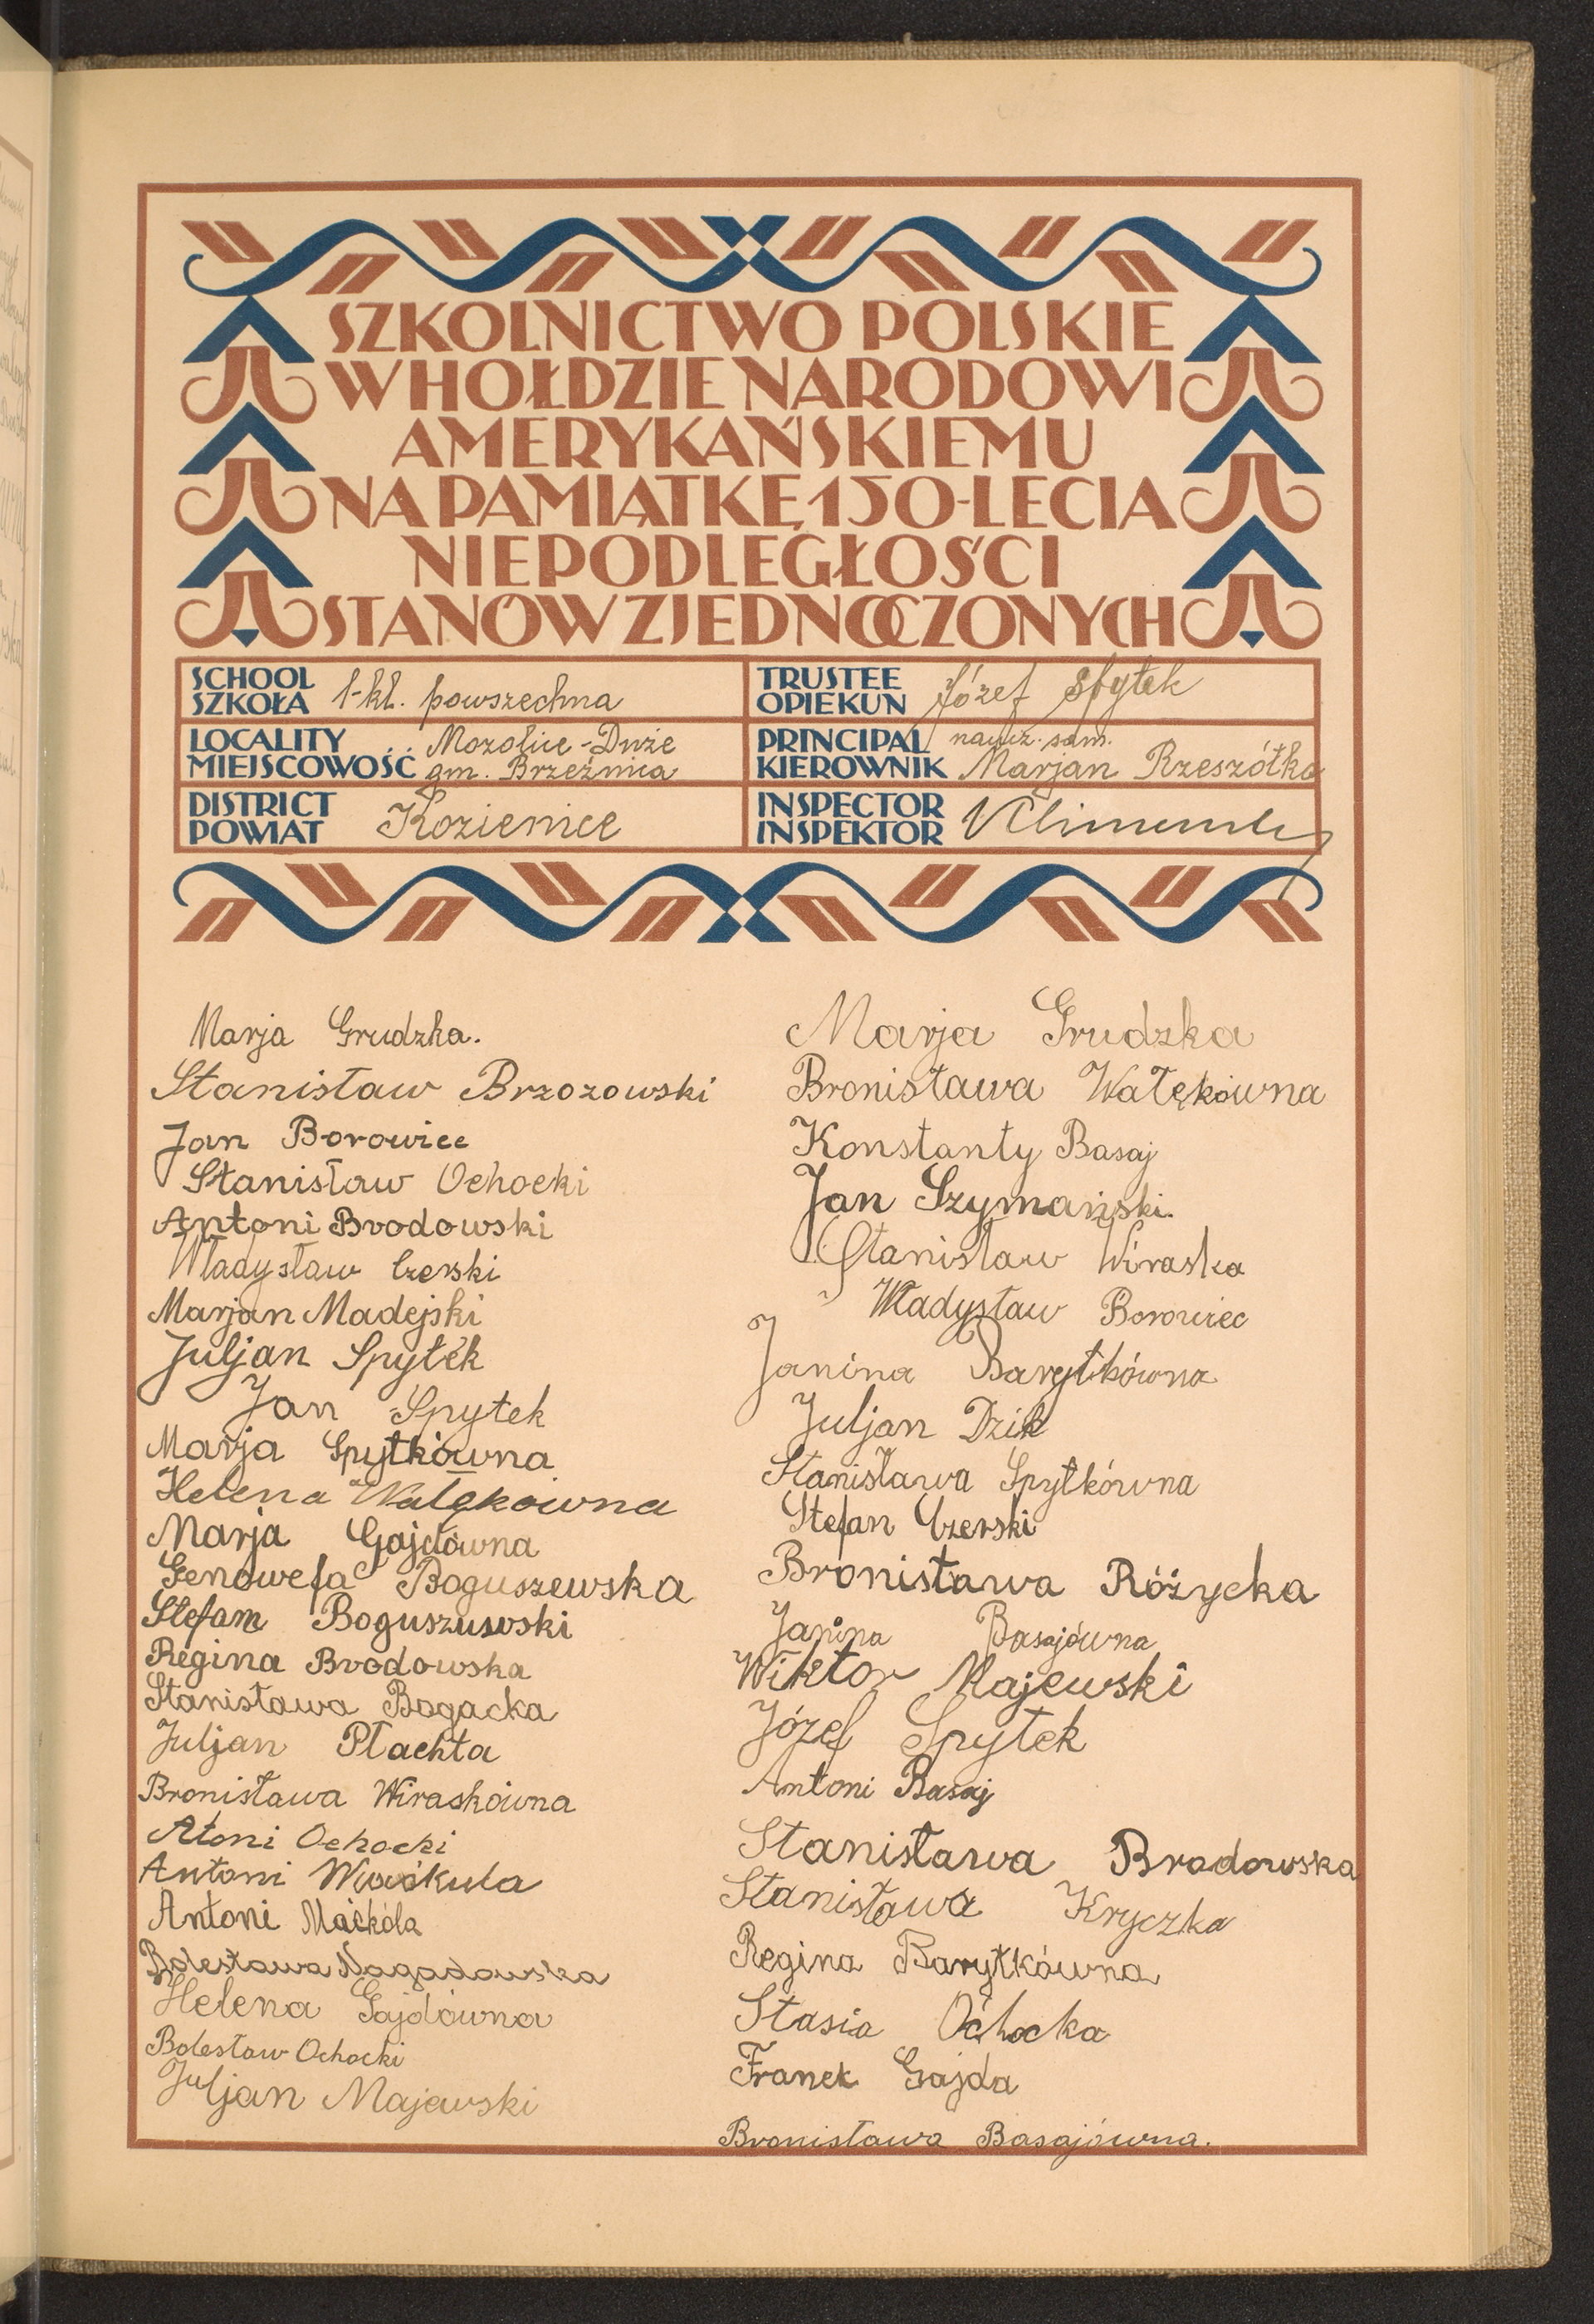 SZKOLNICTWO POLSKIE
W HOŁDZIE NARODOWI
AMERYKAŃSKIEMU
NA PAMIĄTKĘ 150-LECIA
NIEPODLEGŁOŚCI
STANÓW ZJEDNOCZONYCH
SCHOOL
SZKOŁA 1-kl. powszechna
TRUSTEE
OPIEKUN Józef Spytek
LOCALITY
MIEJSCOWOŚĆ Mozolice-Duże
gm. Brzeźnica
PRINCIPAL naucz. sam.
KIEROWNIK Marjan Rzeszótko
DISTRICT
POWIAT Kozienice
INSPECTOR
INSPEKTOR
Marja Grudzka.
Stanisław Brzozowski
Jan Borowiec
Stanisław Ochocki
Antoni Brodowski
Władysław Czerski
Marjan Madejski
Juljan Spytek
Jan Spytek
Marja Spytkówna
Helena Wałękówna
Marja Gajdówna
Genowefa Boguszewska
Stefam Boguszuwski
Regina Brodowska
Stanisława Bogacka
Juljan Płachta
Bronisława Wiraskówna
Atoni Ochocki
Antoni
Antoni Maćkola
Bolesława Nagadowska
Helena Gajdówna
Bolesław Ochocki
Juljan Majewski
Marja Grudzka
Bronisława Wałękówna
Konstanty Basaj
Jan Szymański.
Stanisław Wiraska
Władysław Borowiec
Janina Barytkówna
Juljan Dzik
Stanisława Spytkówna
Stefan Czerski
Bronisława Różycka
Janina Basajówna
Wiktor Majewski
Józef Spytek
Antoni Basaj
Stanisława Bradowska
Stanisława Kryczka
Regina Barytkówna
Stasia Ochocka
Franek Gajda
Bronisława Basajówna.